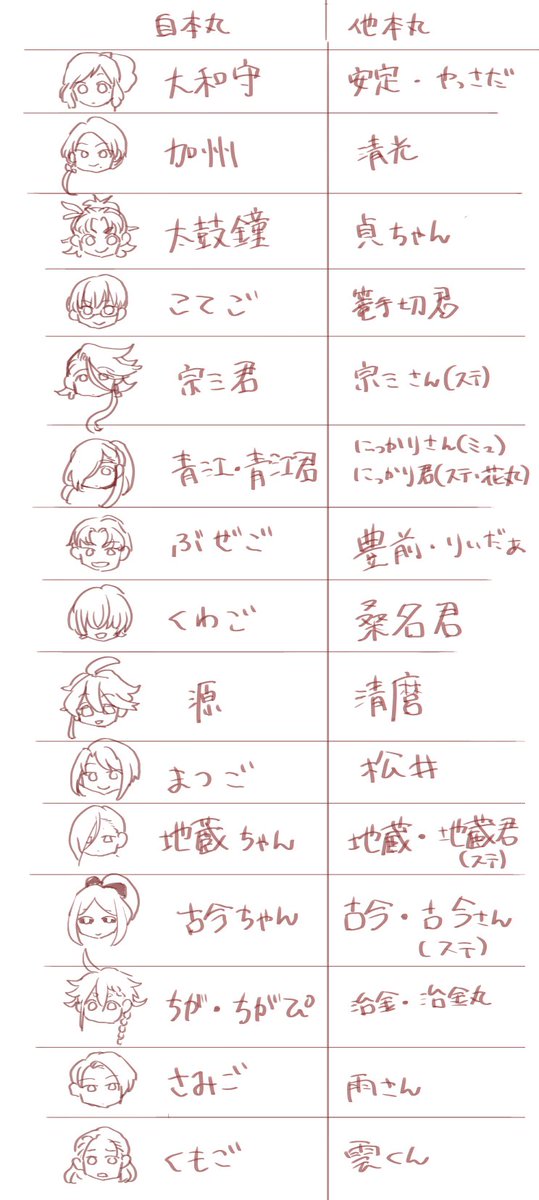 自本丸 他本丸
大和守 安定・やっさだ
加州 清光
太鼓鐘 貞ちゃん
こてご 篭手切君
宗三君 宗三さん(ステ)
青江・青江君 にっかりさん(ミュ)
にっかり君(ステ・花丸)
ぶぜご 豊前・りいだあ
くわご 桑名君
源 清麿
まつご 松井
地蔵ちゃん 地蔵・地蔵君
(ステ)
古今ちゃん 古今・古今さん
(ステ)
ちが・ちがぴ 治金・治金丸
さみご 雨さん
くもご 雲くん